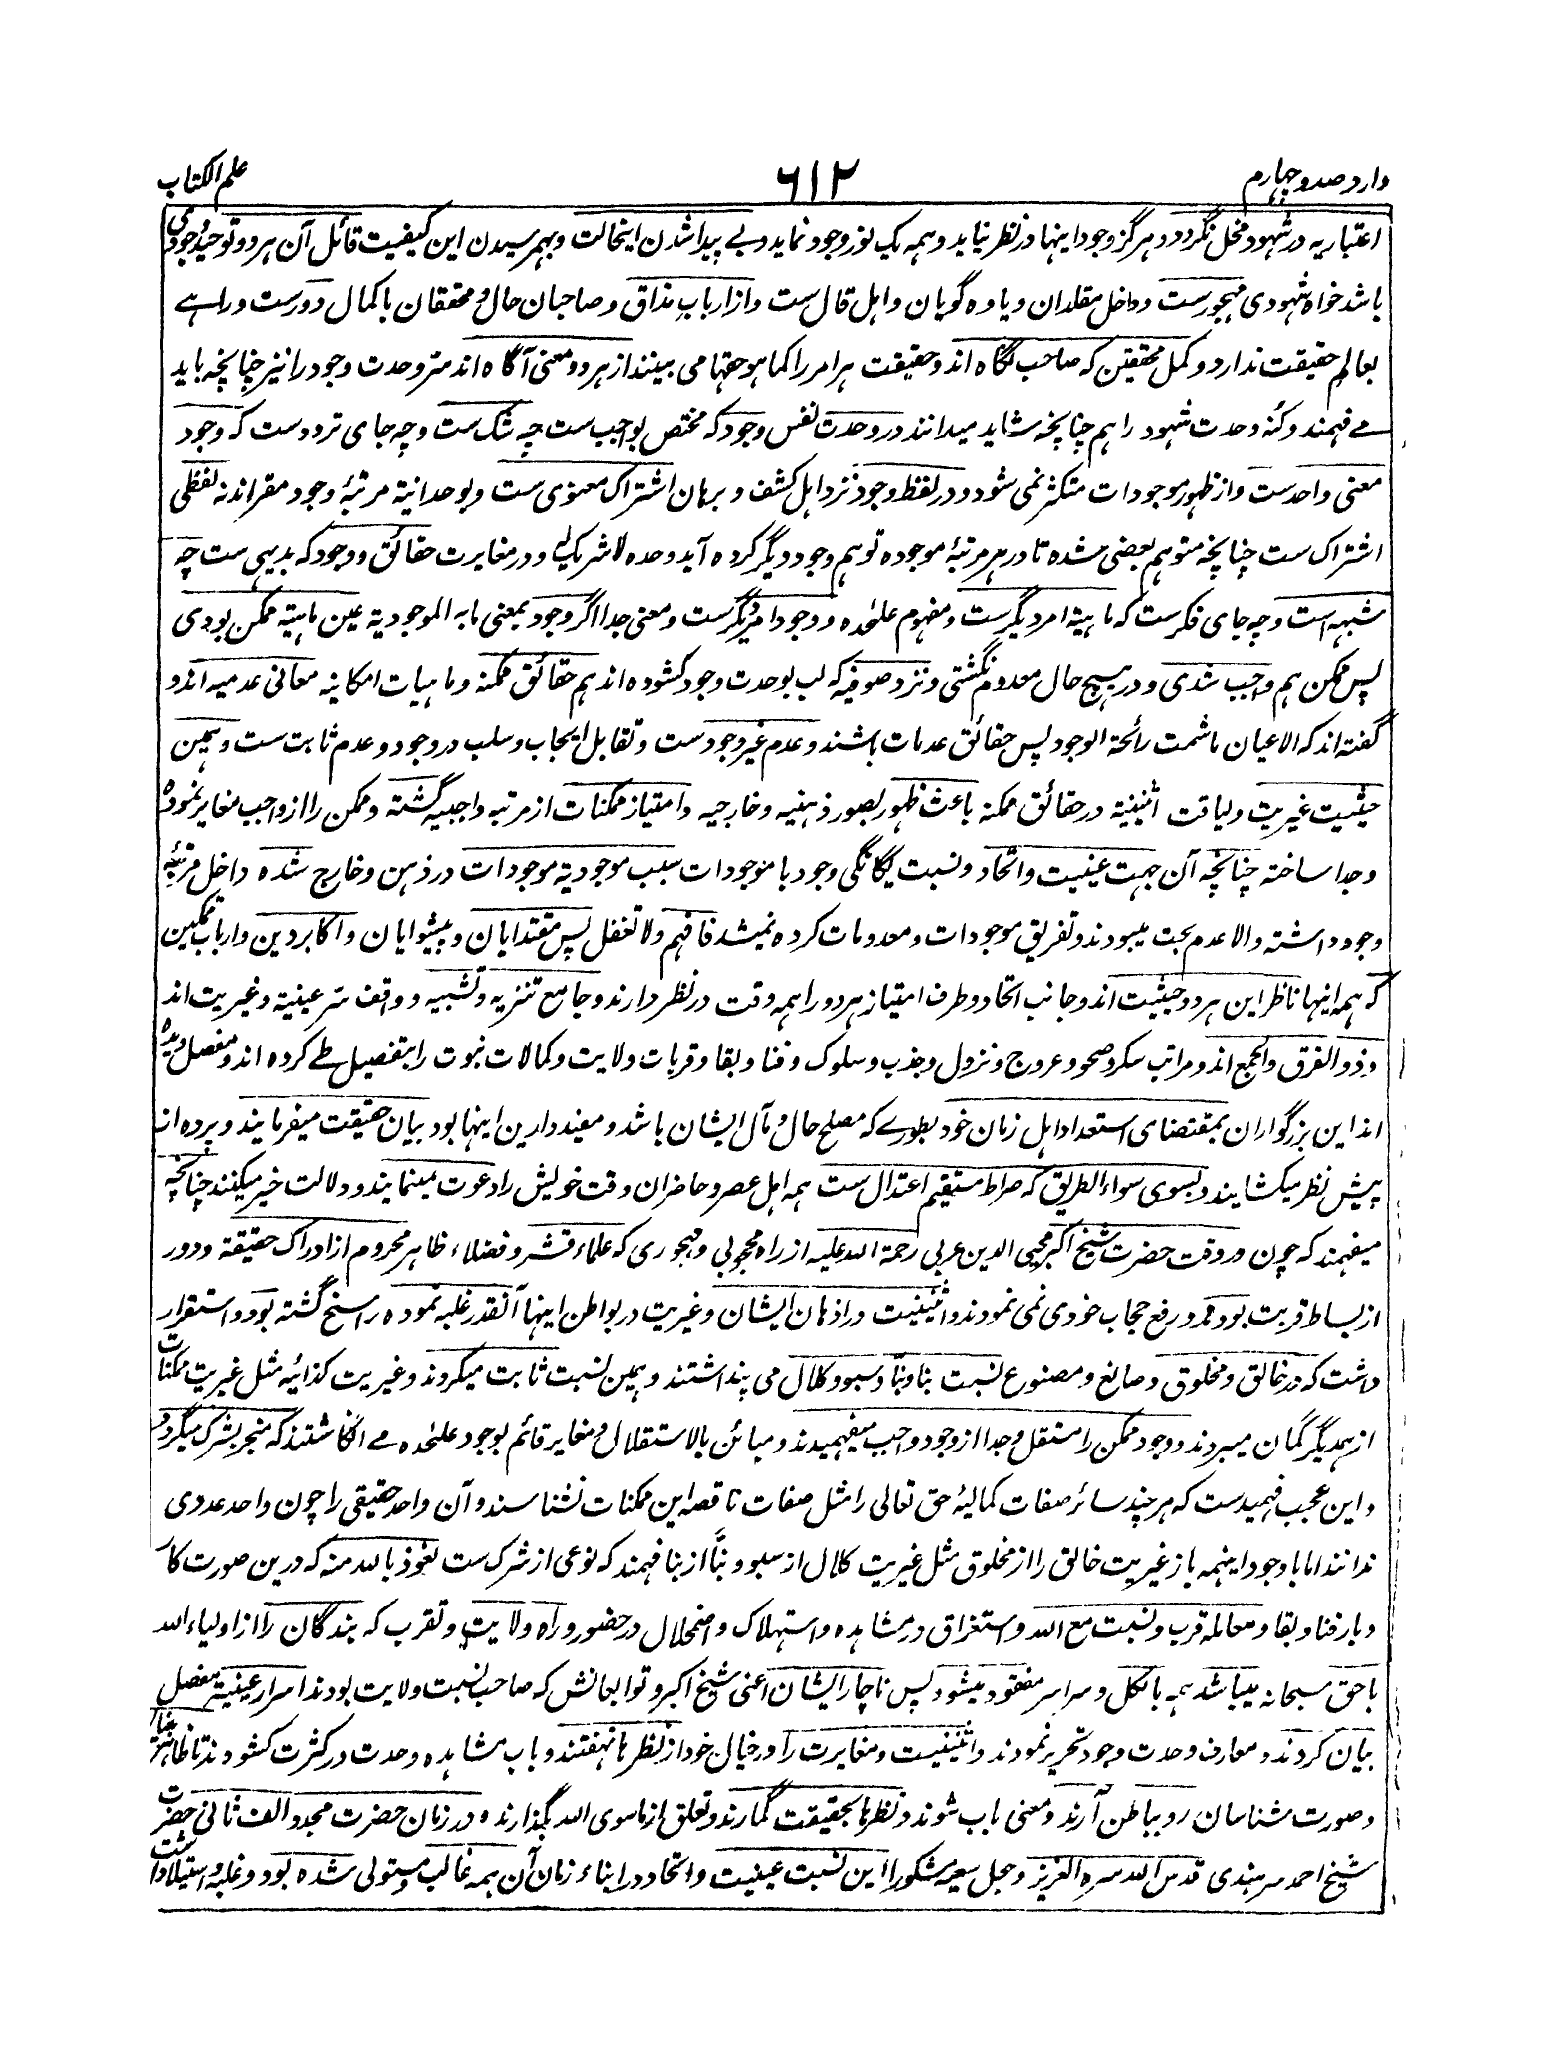 وارد صد و چهارم
٦١٢
علم الکتاب
اعتباریه در شهود مخل نگردد و هرگز وجود اینها در نظر نیاید و همه یک نور وجود نماید و بے پیدا شدن اینحالت و بهم رسیدن این کیفیت قائل آن هر دو توحید وجودی
باشد خواه شهودی مهجورست و داخل مقلدان و یاوه گویان و اهل قال ست و از ارباب مذاق و صاحبان حال و محققان باکمال دورست و راہے
بعالم حقیقت ندارد و کمل محققین که صاحب نگاه اند و حقیقت هر امر را کما هو حقها می بینند از هر دو معنی آگاه اند سر وحدت وجود را نیز چنانچه باید
مے فهمند و کنه وحدت شهود را هم چنانچه شاید میدانند در وحدت نفس وجود که مختص بواجب ست چه شک ست و چه جای تردد ست که وجود
معنی واحد ست و از ظهور موجودات متکثر نمی شود و در لفظ وجود نزد اهل کشف و برهان اشتراک معنوی ست و بوحدانیة مرتبهٔ وجود مقراند نه لفظی
اشتراک ست چنانچه متوهم بعضی شده تا در هر مرتبهٔ موجوده توهم وجود دیگر کرده آید وحده لا شریک له و در مغایرت حقائق و وجود که بدیهی ست چه
شبهه است و چه جای فکر ست که ماهیة امر دیگر ست و مفهوم علیحده و وجود امر دیگرست و معنی جدا اگر وجود بمعنی ما به الموجودیة عین ماهیة ممکن بودی
پس ممکن هم واجب شدی و در هیچ حال معدوم نگشتی و نزد صوفیه که لب بوحدت وجود کشوده اند هم حقائق ممکنه و ماهیات امکانیه معانی عدمیه اند و
گفته اند که الاعیان ما شمت رائحة الوجود پس حقائق عدمات باشند و عدم غیر وجود ست و تقابل ایجاب و سلب در وجود و عدم ثابت ست و همین
حیثیت غیریت و لیاقت اثنینیة در حقائق ممکنه باعث ظهور بصور ذهنیه و خارجیه و امتیاز ممکنات از مرتبه واجبیه گشته و ممکن را از واجب مغایر نموده
و جدا ساخته چنانچه آن جهت عینیت و اتحاد و نسبت یگانگی وجود با موجودات سبب موجودیة موجودات در ذهن و خارج شده داخل مرتبهٔ
وجود داشته و الا عدم بحت میبودند و تفریق موجودات و معدومات کرده نمیشد فافهم و لا تغفل پس مقتدایان و پیشوایان و اکابر دین و ارباب تمکین
که همه اینها ناظر این هر دو حیثیت اند و جانب اتحاد و طرف امتیاز هر دو را همه وقت در نظر دارند و جامع تنزیه و تشبیه و واقف سر عینیة و غیریت اند
و ذو الفرق و الجمع اند و مراتب سکر و صحو و عروج و نزول و جذب و سلوک و فنا و بقا و قربات ولایت و کمالات نبوت را بتفصیل طے کرده اند و مفصل دیده
اند این بزرگواران بمقتضای استعداد اهل زمان خود بطورے که مصلح حال و مآل ایشان باشد و مفید دارین اینها بود بیان حقیقت میفرمایند و پرده از
پیش نظر میکشایند و بسوی سواء الطریق که صراط مستقیم اعتدال ست همه اهل عصر و حاضران وقت خویش را دعوت مینمایند و دلالت خیر میکنند چنانچه
میفهمند که چون در وقت حضرت شیخ اکبر محیی الدین عربی رحمة الله علیه از راه محجوبی و مهجوری که علماء قشر و فضلاء ظاهر محروم از ادراک حقیقة و دور
از بساط قربت بودند و رفع حجاب خودی نمی نمودند و اثنینیت در اذهان ایشان و غیریت در بواطن اینها آنقدر غلبه نموده راسخ گشته بود و استقرار
داشت که در خالق و مخلوق و صانع و مصنوع نسبت بنا و بنّا و سبو و کلال می پنداشتند و همین نسبت ثابت میکردند و غیریت کذائیه مثل غیریت ممکنات
از همدیگر گمان میبردند و وجود ممکن را مستقل و جدا از وجود واجب میفهمیدند و مبائن بالاستقلال و مغایر قائم بوجود علیحده مے انگاشتند که منجر بشرک میگردد
و این عجب فهمیدست که هر چند سائر صفات کمالیهٔ حق تعالی را مثل صفات ناقصه این ممکنات نشناسند و آن واحد حقیقی را چون واحد عددی
ندانند اما باوجود اینهمه باز غیریت خالق را از مخلوق مثل غیریت کلال از سبو و بنّا از بنا فهمند که نوعی از شرک ست نعوذ بالله منه که درین صورت کار
و بار فنا و بقا و معامله قرب و نسبت مع الله و استغراق در مشاهده و استهلاک و اضمحلال در حضور و راه ولایت و تقرب که بندگان را از اولیاء الله
با حق سبحانه میباشد همه بالکل و سراسر مفقود میشود پس ناچار ایشان اعنی شیخ اکبر و توابعانش که صاحب نسبت ولایت بودند اسرار عینیة مفصل
بیان کردند و معارف وحدت وجود تحریر نمودند و اثنینیت و مغایرت را در خیال خود از نظرها نهفتند و باب مشاهده وحدت در کثرت کشودند تا ظاهر بینان
و صورت شناسان رو بباطن آرند و معنی یاب شوند و نظرها بحقیقت گمارند و تعلق از ماسوی الله بگذارند و در زمان حضرت مجدد الف ثانی حضرت
شیخ احمد سرهندی قدس الله سره العزیز و جعل سعیه مشکورا این نسبت عینیت و اتحاد در ابناء زمان آن همه غالب و مستولی شده بود و غلبهٔ استیلا داشت